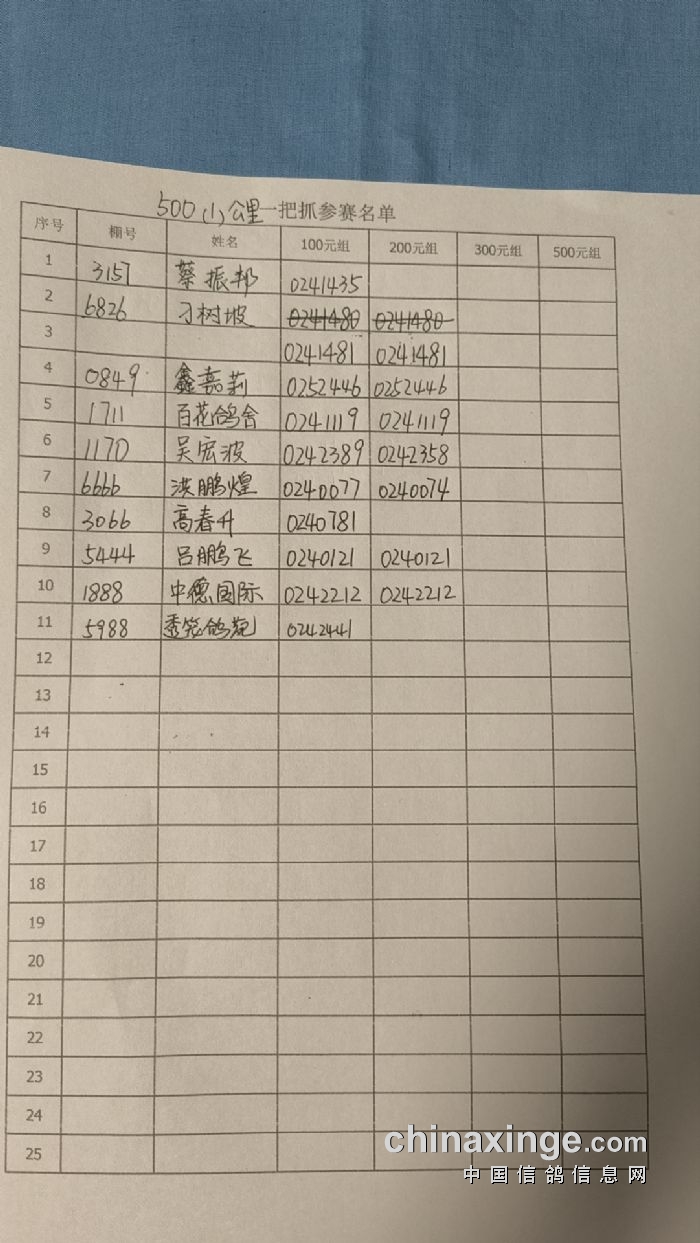 500(1)公里一把抓参赛名单
序号 棚号 姓名 100元组 200元组 300元组 500元组
1 3157 蔡振邦 0241435
2 6826 刁树坡 0241480 0241480
3 0241481 0241481
4 0849 鑫嘉莉 0252446 0252446
5 1711 百花鸽舍 0241119 0241119
6 1170 吴宏波 0242389 0242358
7 6666 洪鹏煌 0240077 0240074
8 3066 高春升 0240781
9 5444 吕鹏飞 0240121 0240121
10 1888 中德国际 0242212 0242212
11 5988 鸽苑 0242441
12
13
14
15
16
17
18
19
20
21
22
23
24
25
chinaxinge.com
中国信鸽信息网